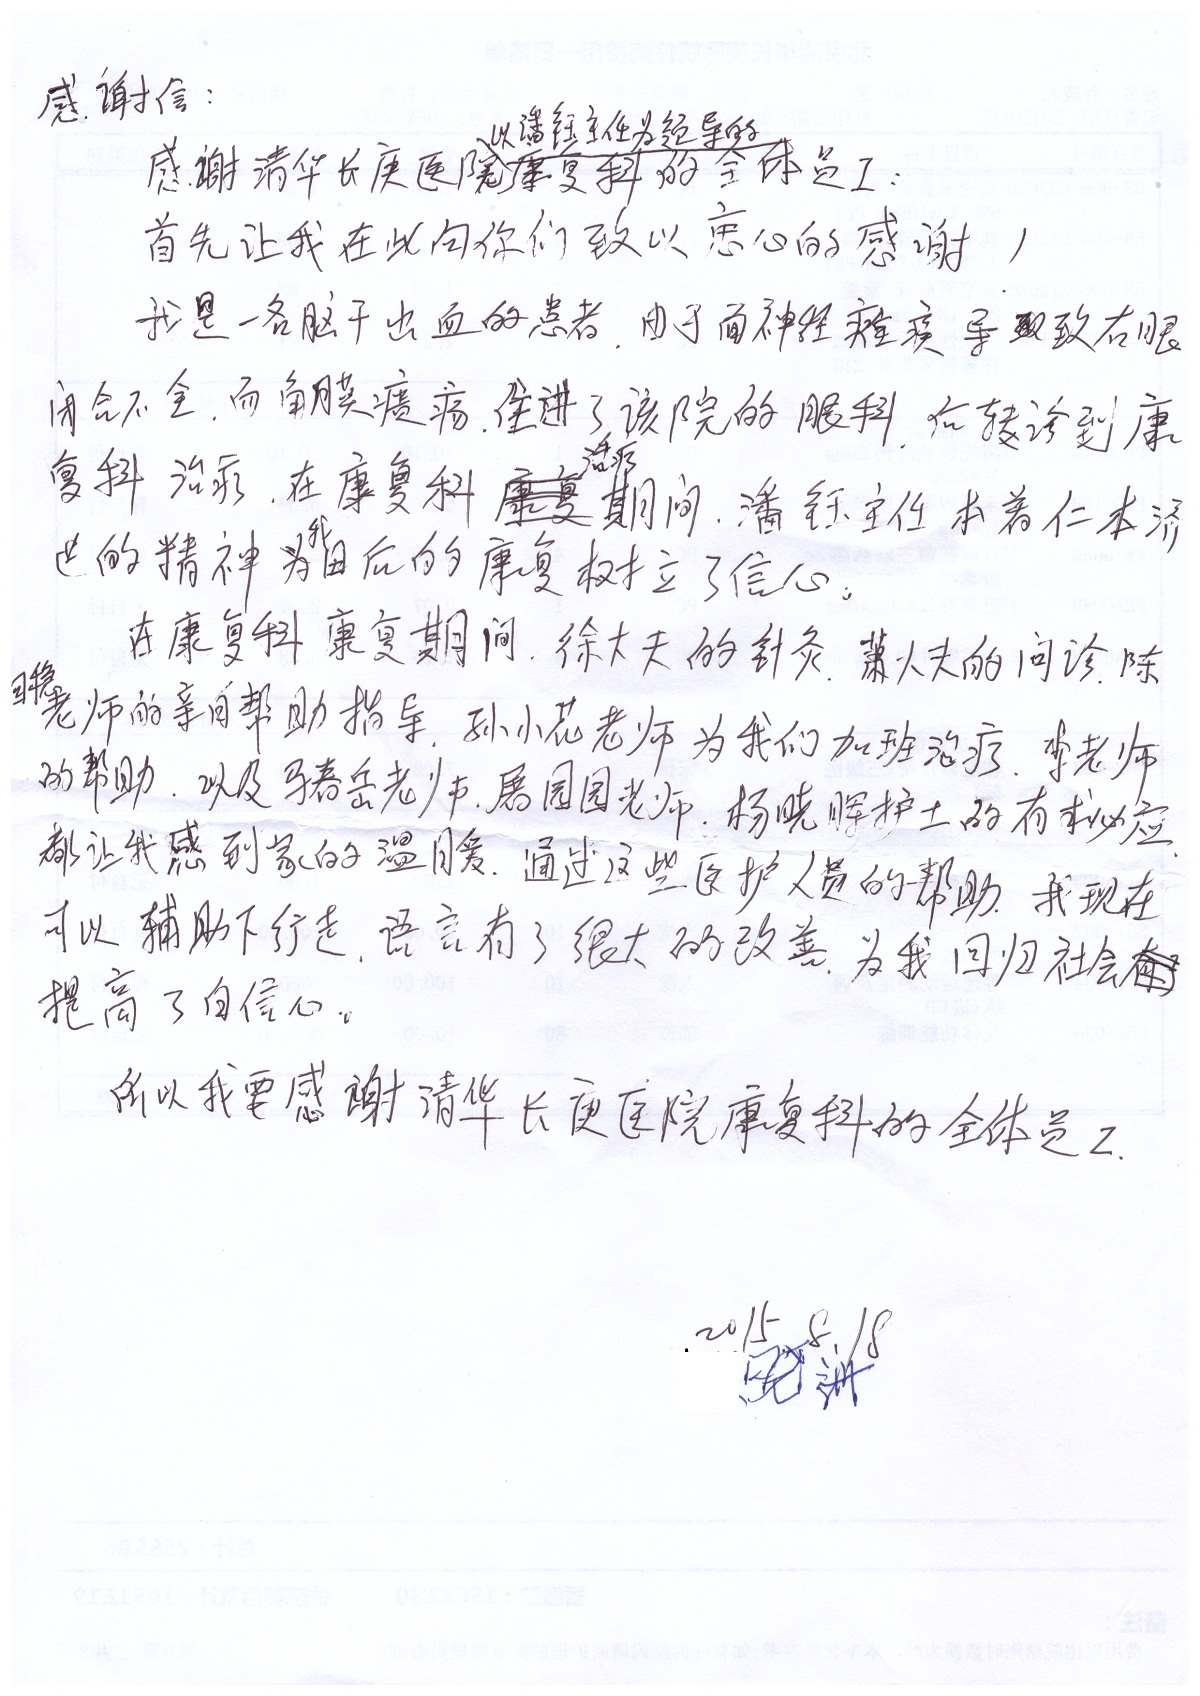 感谢信：
以潘钰主任为领导的
感谢清华长庚医院康复科的全体员工：
首先让我在此向你们致以忠心的感谢！
我是一名脑干出血的患者，由于面神经瘫痪导致右眼
闭合不全，而角膜溃疡，住进了该院的眼科，后转诊到康
治疗
复科治疗，在康复科期间，潘钰主任本着仁本济
世的精神为我日后的康复树立了信心。
在康复科康复期间，徐大夫的针灸，萧大夫的问诊，陈
老师的亲自帮助指导，孙小花老师为我们加班治疗，李老师
的帮助，以及马春岳老师，屠园园老师，杨晓晖护士的有求必应，
都让我感到家的温暖，通过这些医护人员的帮助，我现在
可以辅助下行走，语言有了很大的改善，为我回归社会
提高了自信心。
所以我要感谢清华长庚医院康复科的全体员工.
2015.8.18